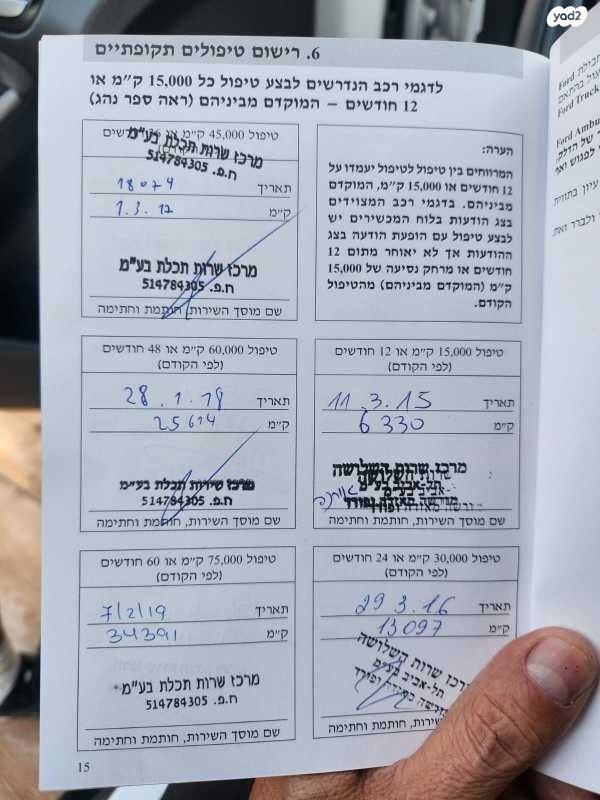 yad2
6. רישום טיפולים תקופתיים
לדגמי רכב הנדרשים לבצע טיפול כל 15,000 ק״מ או
12 חודשים – המוקדם מביניהם (ראה ספר נהג)
הערה:
המרווחים בין טיפול לטיפול יעמדו על
12 חודשים או 15,000 ק״מ, המוקדם
מביניהם. בדגמי רכב המצוידים
בצג הודעות בלוח המכשירים יש
לבצע טיפול עם הופעת הודעה בצג
ההודעות אך לא יאוחר מתום 12
חודשים או מרחק נסיעה של 15,000
ק״מ (המוקדם מביניהם) מהטיפול
הקודם.
טיפול 45,000 ק״מ או 36 חודשים
מרכז שרות תכלת בע״מ
ח.פ. 514784305
תאריך 18074
ק״מ 1.3.17
מרכז שרות תכלת בע״מ
ח.פ. 514784305
שם מוסך השירות, חותמת וחתימה
טיפול 15,000 ק״מ או 12 חודשים
(לפי הקודם)
תאריך 11.3.15
ק״מ 6330
מרכז שרות השלושה
תל-אביב בע״מ
מורשה מאזדה ופורד
שם מוסך השירות, חותמת וחתימה
טיפול 60,000 ק״מ או 48 חודשים
(לפי הקודם)
תאריך 28.1.18
ק״מ 25614
מרכז שירות תכלת בע״מ
ח.פ. 514784305
שם מוסך השירות, חותמת וחתימה
טיפול 30,000 ק״מ או 24 חודשים
(לפי הקודם)
תאריך 29 3.16
ק״מ 13097
מרכז שרות השלושה
תל-אביב בע״מ
מורשה מאזדה ופורד
שם מוסך השירות, חותמת וחתימה
טיפול 75,000 ק״מ או 60 חודשים
(לפי הקודם)
תאריך 7/2/19
ק״מ 34391
מרכז שרות תכלת בע״מ
ח.פ. 514784305
שם מוסך השירות, חותמת וחתימה
15
Ford
Ford Truck
Ford Ambu
של הדלק,
עיון בתווית
ולברר זאת.